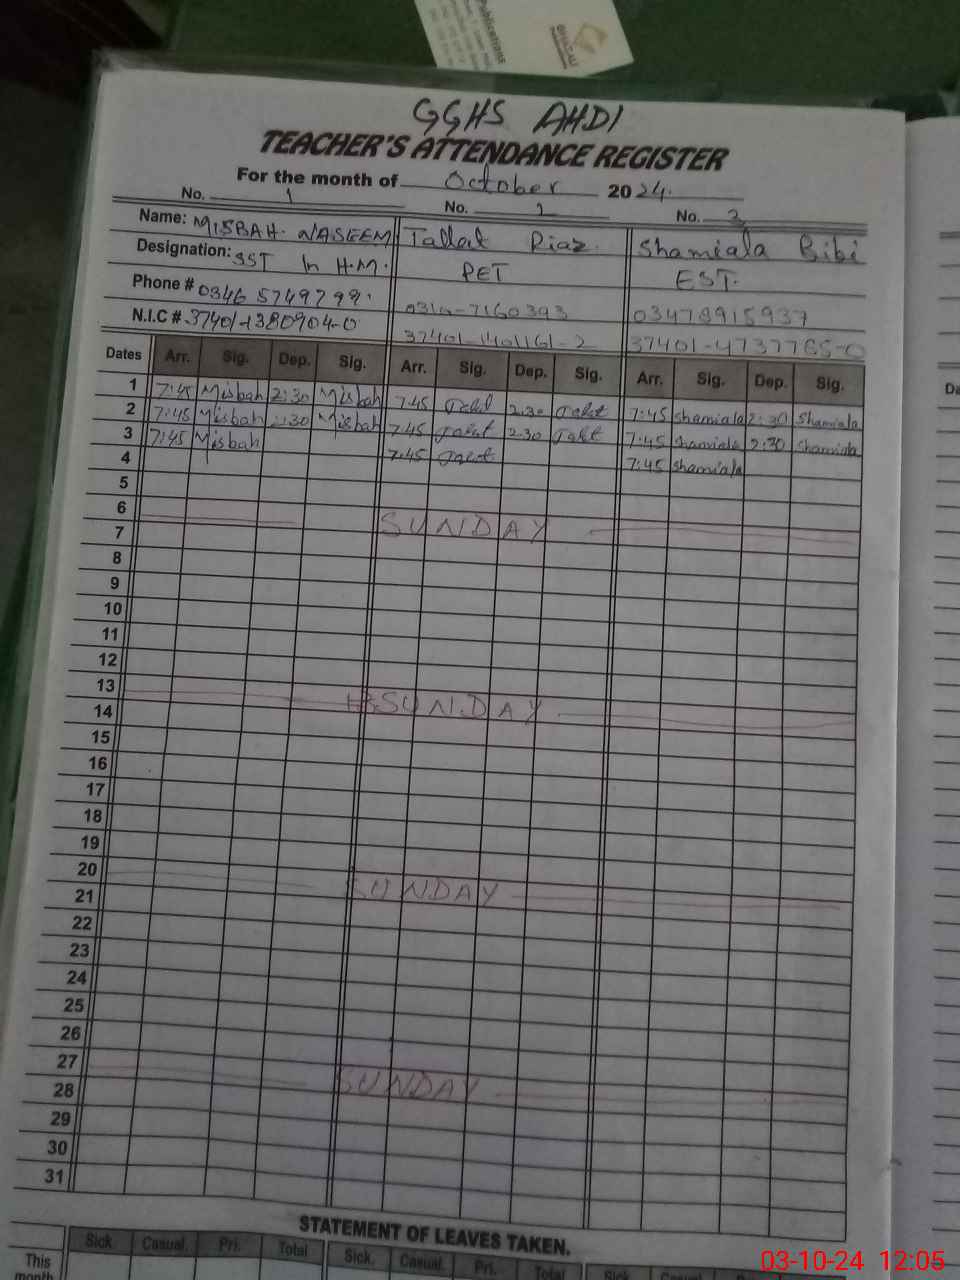 Publications
GGHS AHDI
TEACHER'S ATTENDANCE REGISTER
For the month of October 2024.
No. 1 No. 2 No. 3
Name: MISBAH. NASEEM Tallat Riaz. Shamiala Bibi
Designation: SST In H.M. PET EST.
Phone # 0346 5749799. 0310-7160393 03478915937
N.I.C # 37401-1380904-0 37401-1401161-2 37401-4737765-0
Dates Arr. Sig. Dep. Sig. Arr. Sig. Dep. Sig. Arr. Sig. Dep. Sig.
1 7:45 Misbah 2:30 Misbah 7:45 Talat 2:30 Talat 7:45 Shamiala 2:30 Shamiala
2 7:45 Misbah 2:30 Misbah 7:45 Talat 2:30 Talat 7:45 Shamiala 2:30 Shamiala
3 7:45 Misbah 7:45 Talat 7:45 Shamiala
4
5
6 SUNDAY
7
8
9
10
11
12
13 SUNDAY
14
15
16
17
18
19
20 SUNDAY
21
22
23
24
25
26
27 SUNDAY
28
29
30
31
STATEMENT OF LEAVES TAKEN.
Sick. Casual. Pri. Total Sick. Casual. Pri. Total Sick. Casual. Pri.
This
month
03-10-24 12:05